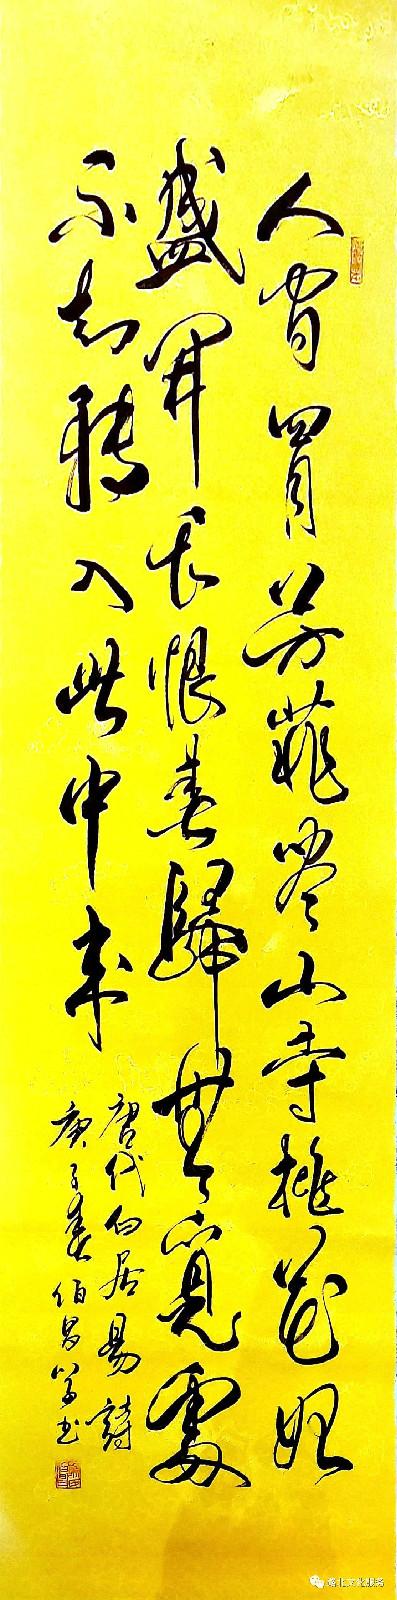 人間四月芳菲盡山寺桃花始
盛開長恨春歸無覓處
不知轉入此中來
唐代白居易詩
庚子春伯書
文化服务